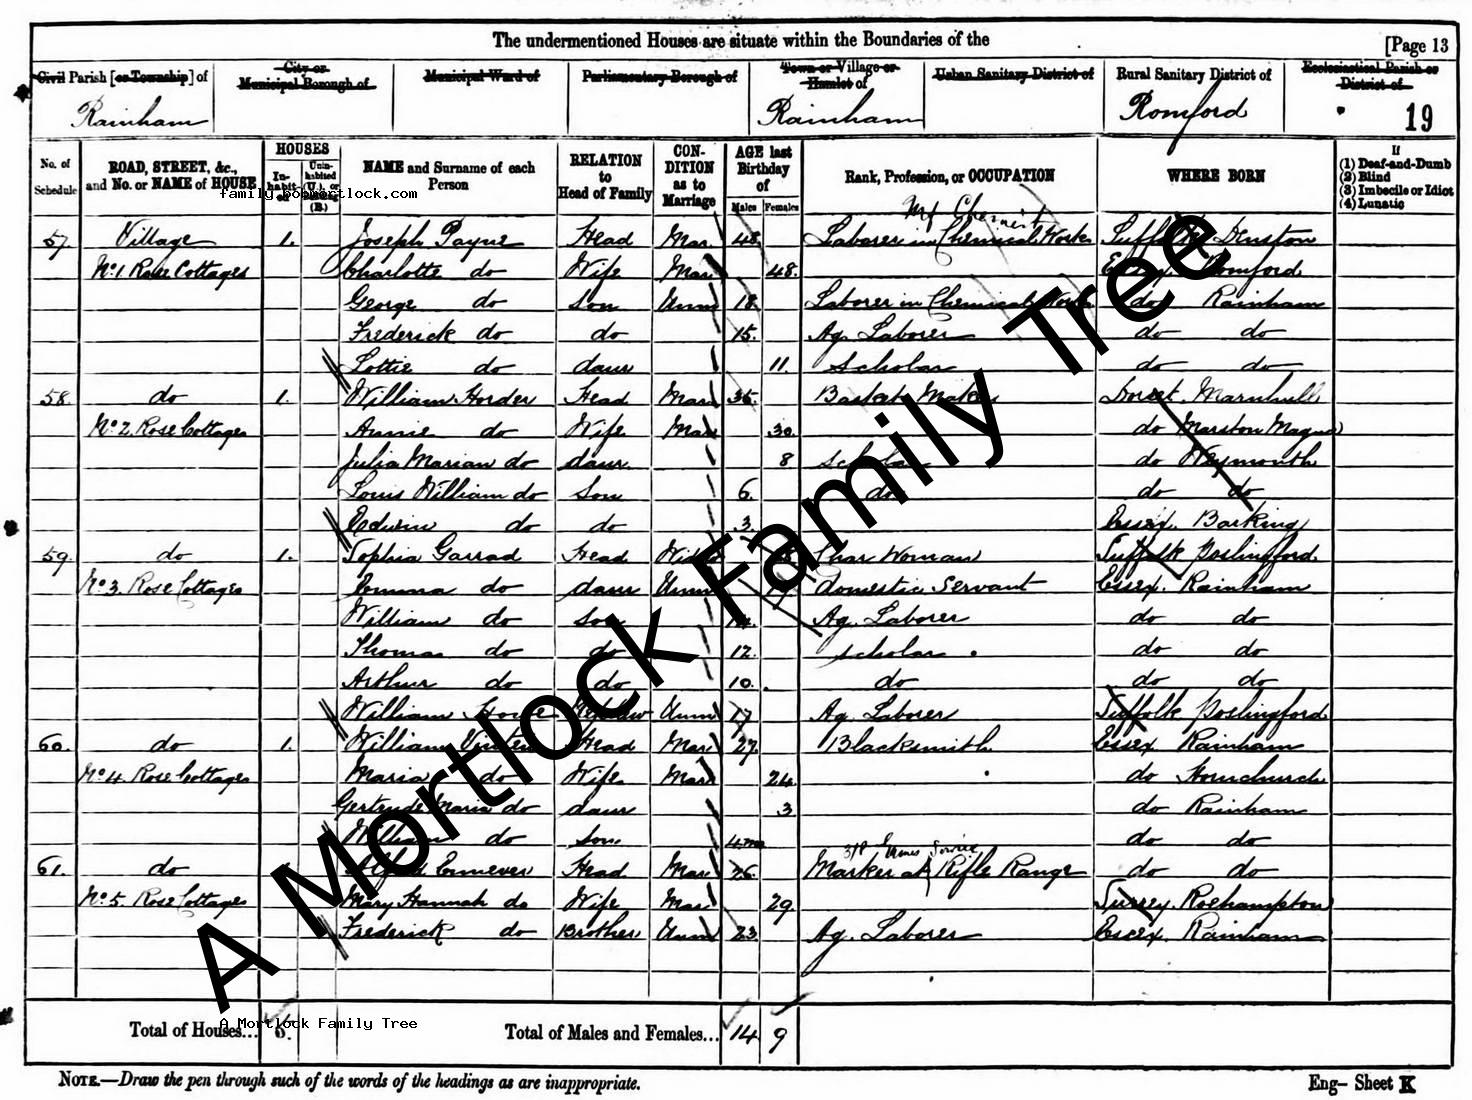 The undermentioned Houses are situate within the Boundaries of the [Page 13
Civil Parish [or Township] of City or Municipal Borough of Municipal Ward of Parliamentary Borough of Town or Village or Hamlet of Urban Sanitary District of Rural Sanitary District of Ecclesiastical Parish or District of
Rainham Rainham Romford 19
No. of Schedule ROAD, STREET, &c., and No. or NAME of HOUSE HOUSES In-habit-ed Unin-habited (U.), or (B.) NAME and Surname of each Person RELATION to Head of Family CON-DITION as to Marriage AGE last Birthday of Males Females Rank, Profession, or OCCUPATION WHERE BORN If (1) Deaf-and-Dumb (2) Blind (3) Imbecile or Idiot (4) Lunatic
family.bobmortlock.com
Mf Chemist
57. Village 1. Joseph Payne Head Mar 48 Laborer in Chemical Works Suffolk Denston
No. 1 Rose Cottages Charlotte do Wife Mar 48. Essex Romford
George do Son Unm 18 Laborer in Chemical Works do Rainham
Frederick do do 15. Ag. Laborer do do
Lottie do daur 11. Scholar do do
58. do 1. William Horder Head Mar 35. Basket Maker Dorset. Marnhull
No. 2. Rose Cottages Annie do Wife Mar 30. do Marston Magna
Julia Marian do daur. 8 Scholar do Weymouth
Louis William do Son 6. do do do
Edwin do do 3. Essex. Barking
59. do 1. Sophia Garrad Head Char Woman Suffolk Poslingford
No. 3. Rose Cottages Emma do daur Unm domestic Servant Essex. Rainham
William do son Ag. Laborer do do
Thomas do do 12. Scholar do do
Arthur do do 10. do do do
William Howe Nephew Unm 17 Ag. Laborer Suffolk Poslingford
60. do 1. William Head Mar 27. Blacksmith Essex Rainham
No. 4 Rose Cottages Maria do Wife Mar 24 do Hornchurch
Gertrude Maria do daur 3 do Rainham
William do Son. 4m do do
318 Service
61. do Alfred Enniver Head Mar 26. Marker at Rifle Range do do
No. 5 Rose Cottages Mary Hannah do Wife Mar 29 Surrey. Roehampton
Frederick do Brother Unm 23 Ag. Laborer Essex. Rainham
A Mortlock Family Tree
Total of Houses... 5. Total of Males and Females... 14 9
A Mortlock Family Tree
NOTE.—Draw the pen through such of the words of the headings as are inappropriate. Eng– Sheet K